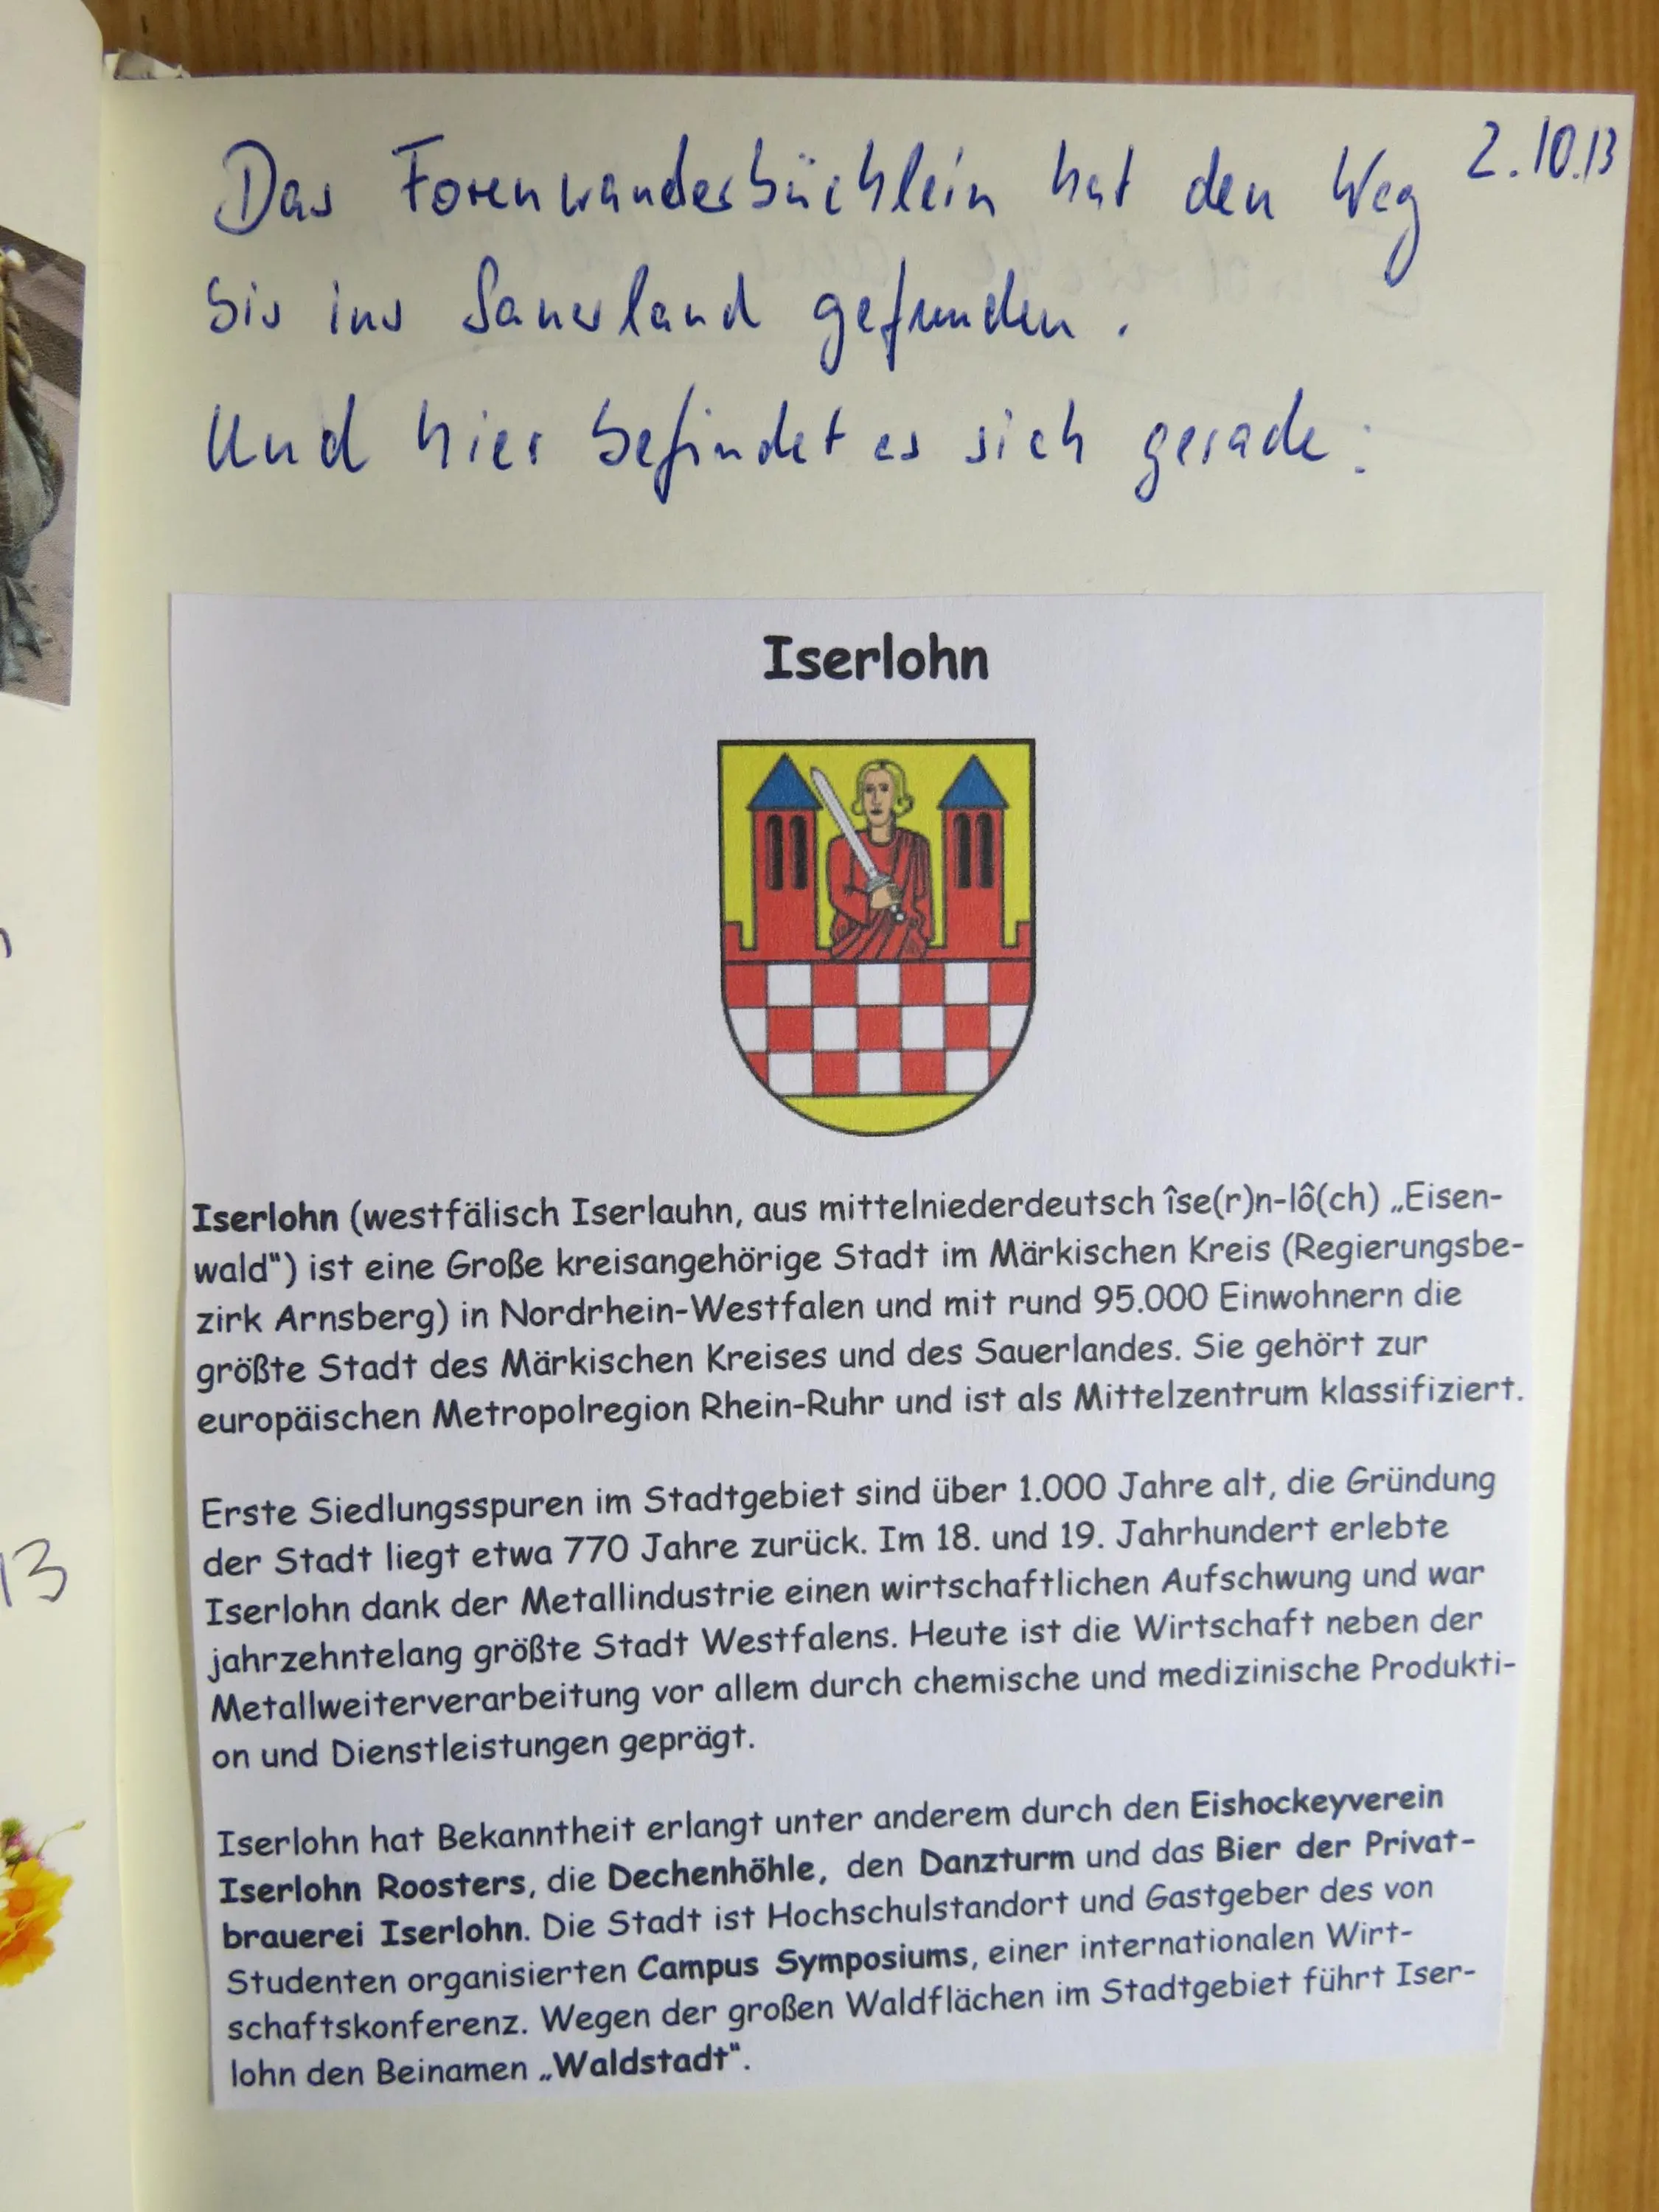 2.10.13
Das Forenwanderbüchlein hat den Weg
bis ins Sauerland gefunden.
Und hier befindet es sich gerade:
Iserlohn
Iserlohn (westfälisch Iserlauhn, aus mittelniederdeutsch îse(r)n-lô(ch) „Eisen-
wald“) ist eine Große kreisangehörige Stadt im Märkischen Kreis (Regierungsbe-
zirk Arnsberg) in Nordrhein-Westfalen und mit rund 95.000 Einwohnern die
größte Stadt des Märkischen Kreises und des Sauerlandes. Sie gehört zur
europäischen Metropolregion Rhein-Ruhr und ist als Mittelzentrum klassifiziert.
Erste Siedlungsspuren im Stadtgebiet sind über 1.000 Jahre alt, die Gründung
der Stadt liegt etwa 770 Jahre zurück. Im 18. und 19. Jahrhundert erlebte
Iserlohn dank der Metallindustrie einen wirtschaftlichen Aufschwung und war
jahrzehntelang größte Stadt Westfalens. Heute ist die Wirtschaft neben der
Metallweiterverarbeitung vor allem durch chemische und medizinische Produkti-
on und Dienstleistungen geprägt.
Iserlohn hat Bekanntheit erlangt unter anderem durch den Eishockeyverein
Iserlohn Roosters, die Dechenhöhle, den Danzturm und das Bier der Privat-
brauerei Iserlohn. Die Stadt ist Hochschulstandort und Gastgeber des von
Studenten organisierten Campus Symposiums, einer internationalen Wirt-
schaftskonferenz. Wegen der großen Waldflächen im Stadtgebiet führt Iser-
lohn den Beinamen „Waldstadt“.
13